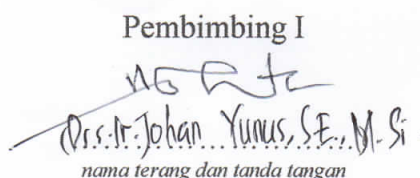 Pembimbing I
(Drs. Ir. Johan Yunus, SE., M.Si
nama terang dan tanda tangan